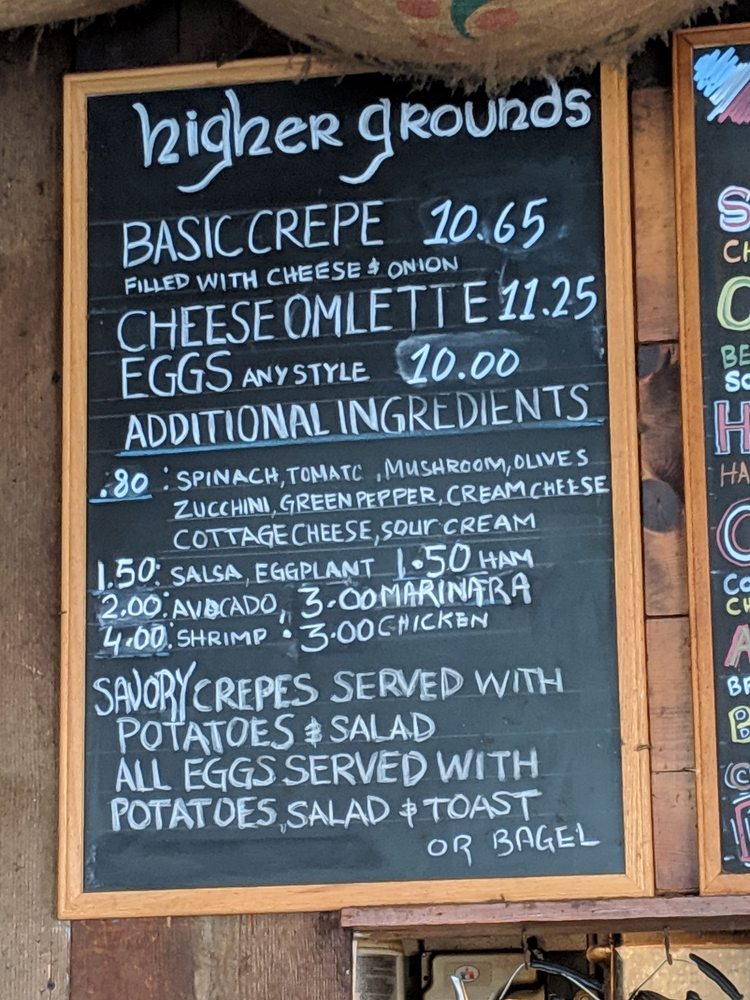 higher grounds
BASIC CREPE 10.65
FILLED WITH CHEESE & ONION
CHEESE OMLETTE 11.25
EGGS ANY STYLE 10.00
ADDITIONAL INGREDIENTS
.80 : SPINACH, TOMATO, MUSHROOM, OLIVES
ZUCCHINI, GREEN PEPPER, CREAM CHEESE
COTTAGE CHEESE, SOUR CREAM
1.50: SALSA, EGGPLANT 1.50 HAM
2.00: AVOCADO, 3.00 MARINARA
4.00: SHRIMP • 3.00 CHICKEN
SAVORY CREPES SERVED WITH
POTATOES & SALAD
ALL EGGS SERVED WITH
POTATOES, SALAD & TOAST
OR BAGEL